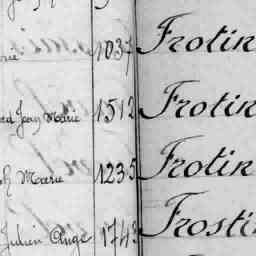 1037 Frotin
Jean Marie 1512 Frotin
Marie 1235 Frotin
Julien Ange 1743 Frostin